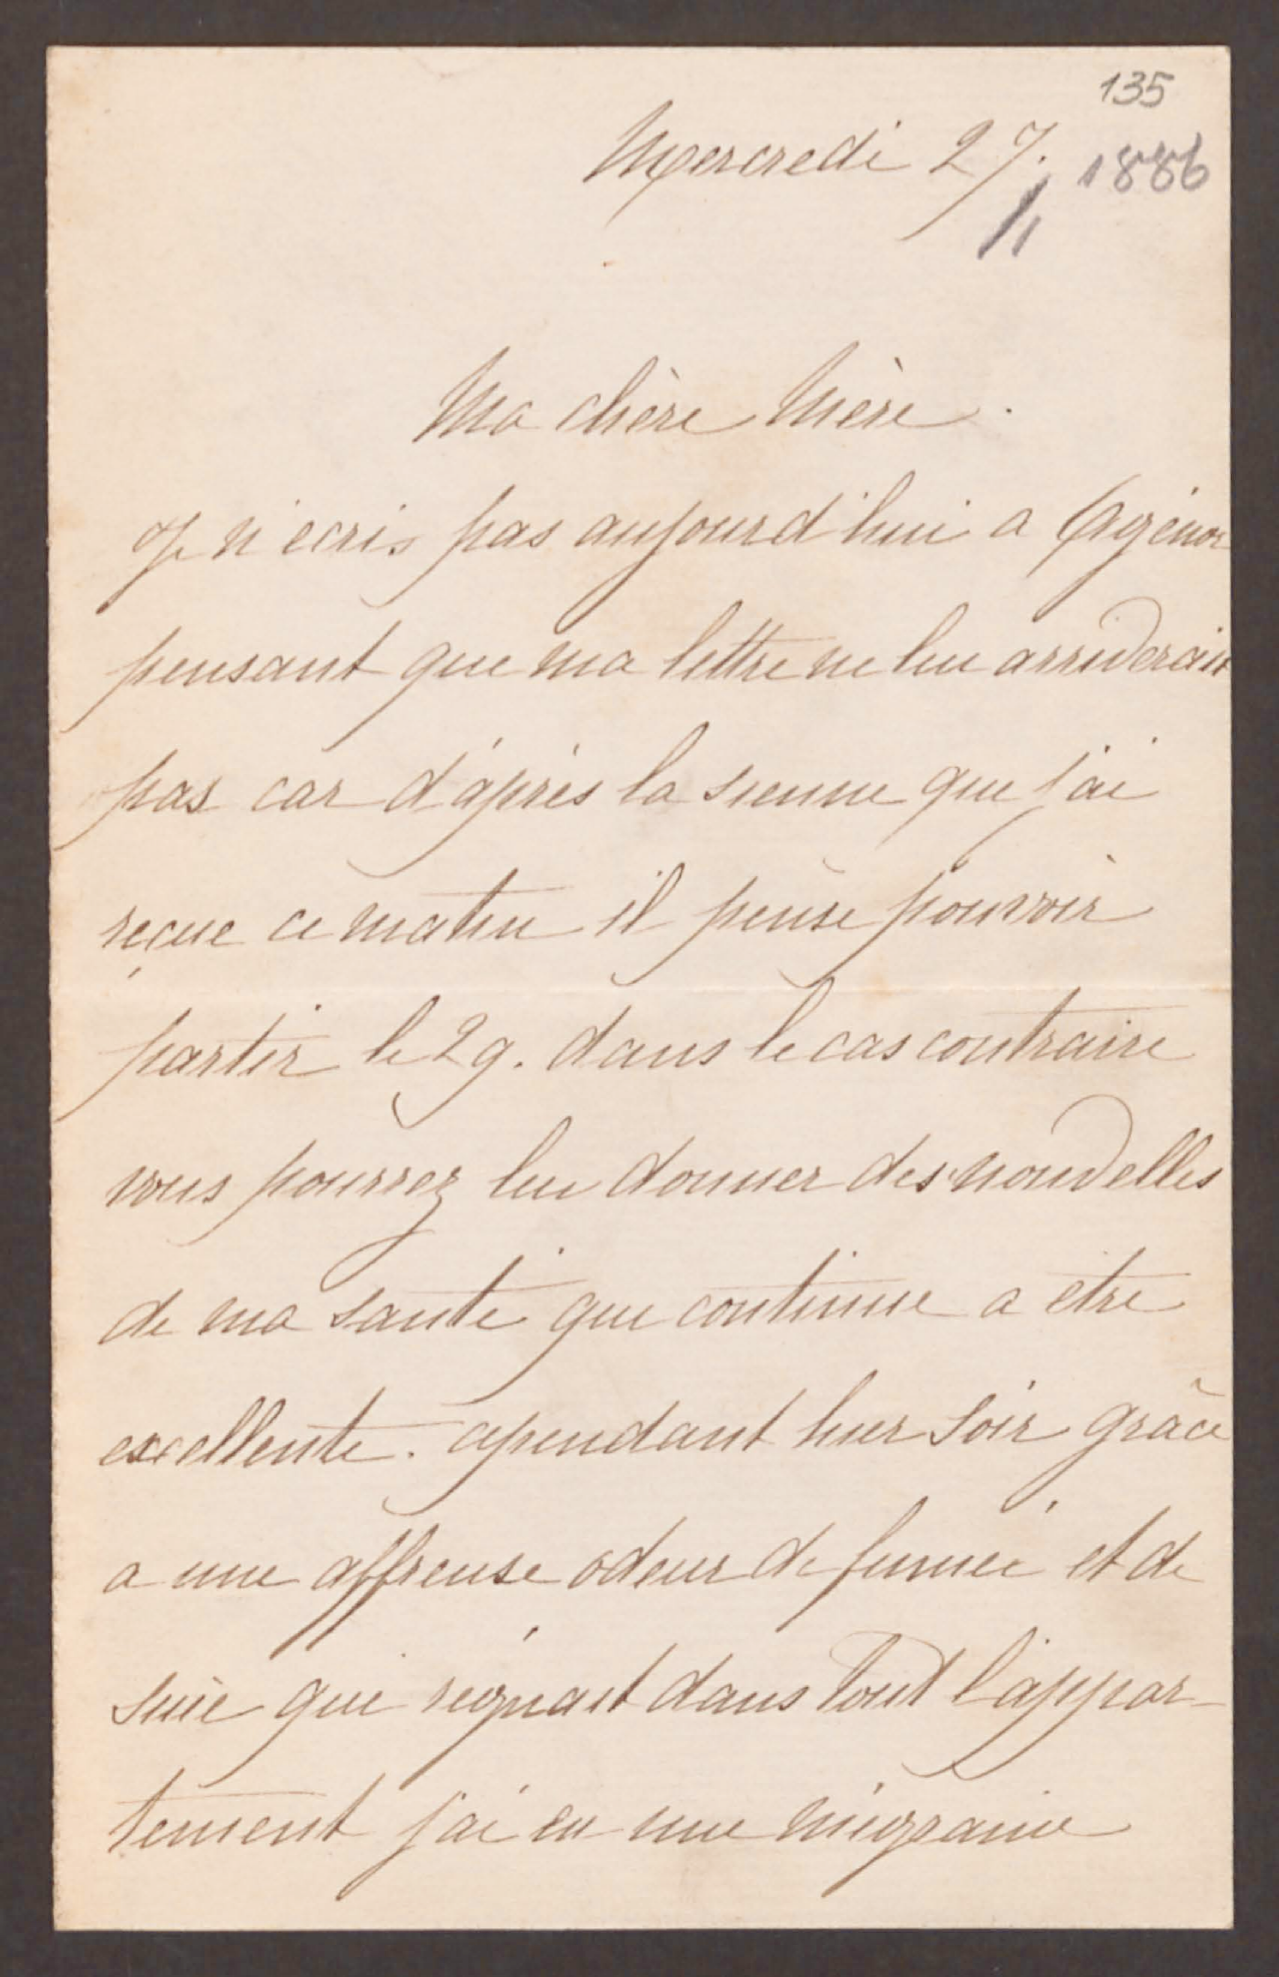 135
Mercredi 27. 1886
Ma chère Mère.
Je n'ecris pas aujourd'hui a Agénor
pensant que ma lettre ne lui arriverait
pas car d'après la sienne que j'ai
reçue ce matin il pense pouvoir
partir le 29. dans le cas contraire
vous pourrez lui donner des nouvelles
de ma santé qui continue a etre
excellente. cependant hier soir grâce
a une affreuse odeur de fumée et de
suie qui régnait dans tout l'appar-
tement j'ai eu une migraine